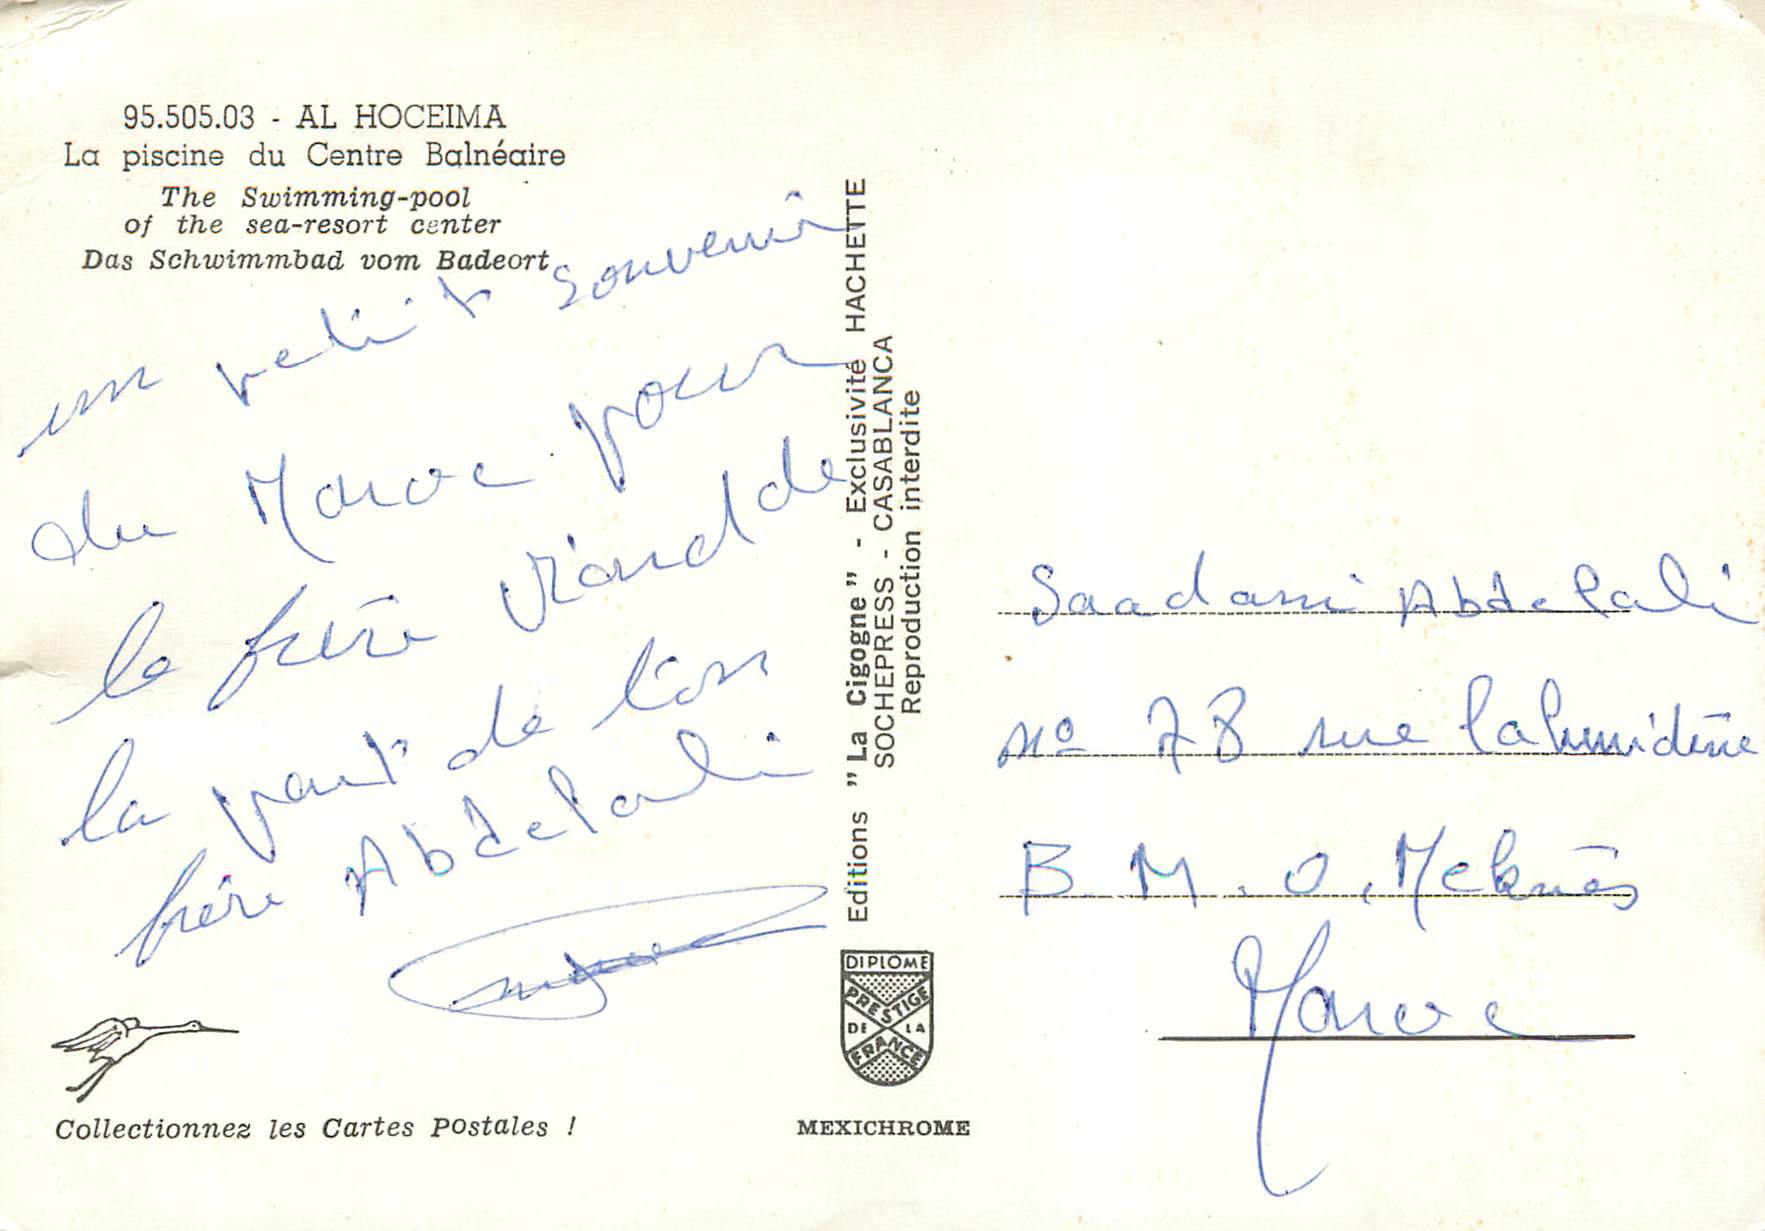 95.505.03 - AL HOCEIMA
La piscine du Centre Balnéaire
The Swimming-pool
of the sea-resort center
Das Schwimmbad vom Badeort
un petit souvenir
du Maroc pour
le frère de
la part de ton
frère Abdelali
Collectionnez les Cartes Postales !
Editions "La Cigogne" - Exclusivité HACHETTE
SOCHEPRESS - CASABLANCA
Reproduction interdite
DIPLOME
PRESTIGE
DE LA
FRANCE
MEXICHROME
Saadani Abdelali
no 78 rue
B. M. O. Meknès
Maroc